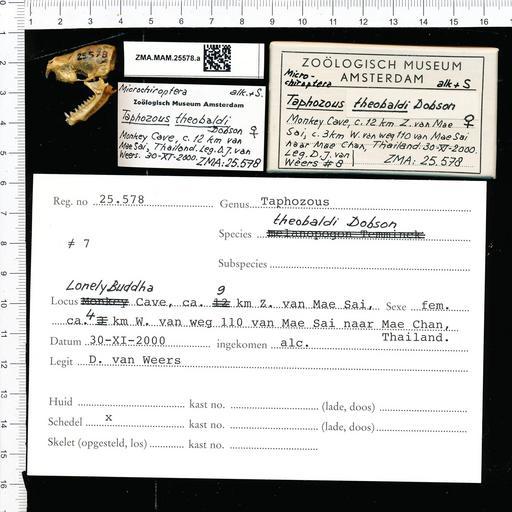 25.578
ZMA.MAM.25578.a
Microchiroptera alk.+S.
Zoölogisch Museum Amsterdam
Taphozous theobaldi
Dobson ♀
Monkey Cave, c.12 km van
Mae Sai, Thailand. Leg. D.J. van
Weers. 30-XI-2000. ZMA: 25.578
ZOÖLOGISCH MUSEUM
AMSTERDAM
Micro-
chiroptera
alk+S
Taphozous theobaldi Dobson ♀
Monkey Cave, c.12 km Z. van Mae
Sai, c.3km W. van weg 110 van Mae Sai
naar Mae Chan, Thailand. 30-XI-2000.
Leg. D.J. van
Weers # 8
ZMA: 25.578
Reg. no 25.578 Genus Taphozous
theobaldi Dobson
≠ 7 Species melanopogon Temminck
Subspecies
Lonely Buddha 9
Locus Monkey Cave, ca. 12 km Z. van Mae Sai, Sexe fem.
4
ca. 3 km W. van weg 110 van Mae Sai naar Mae Chan,
Thailand.
Datum 30-XI-2000 ingekomen alc.
Legit D. van Weers
Huid kast no. (lade, doos)
Schedel x kast no. (lade, doos)
Skelet (opgesteld, los) kast no.